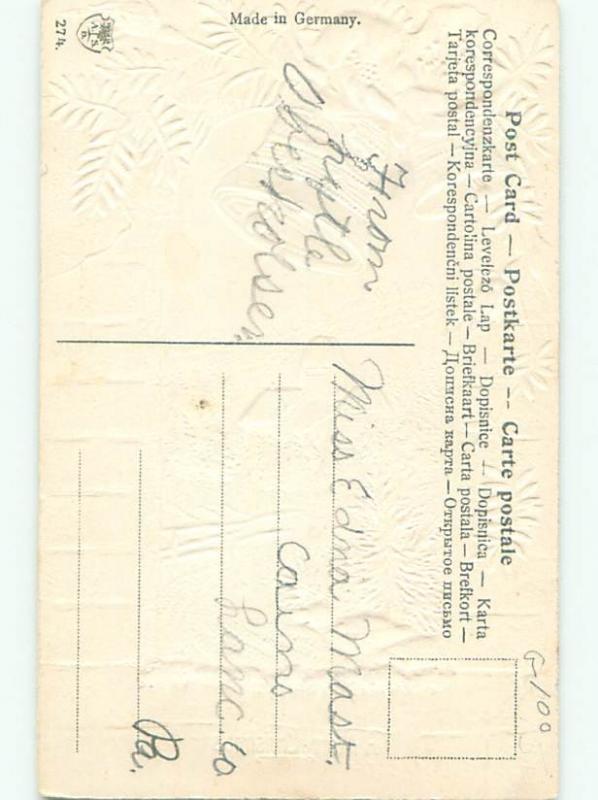 Post Card — Postkarte -- Carte postale
Correspondenzkarte — Levelező Lap — Dopisnice — Dopisnica — Karta
korespondencyjna — Cartolina postale — Briefkaart — Carta postala — Brefkort —
Tarjeta postal — Korespondenční lístek — Дописна карта — Открытое письмо
G-100
From
Miss Edna Mast.
Cains
Lanc. Co
Pa.
Made in Germany.
274.